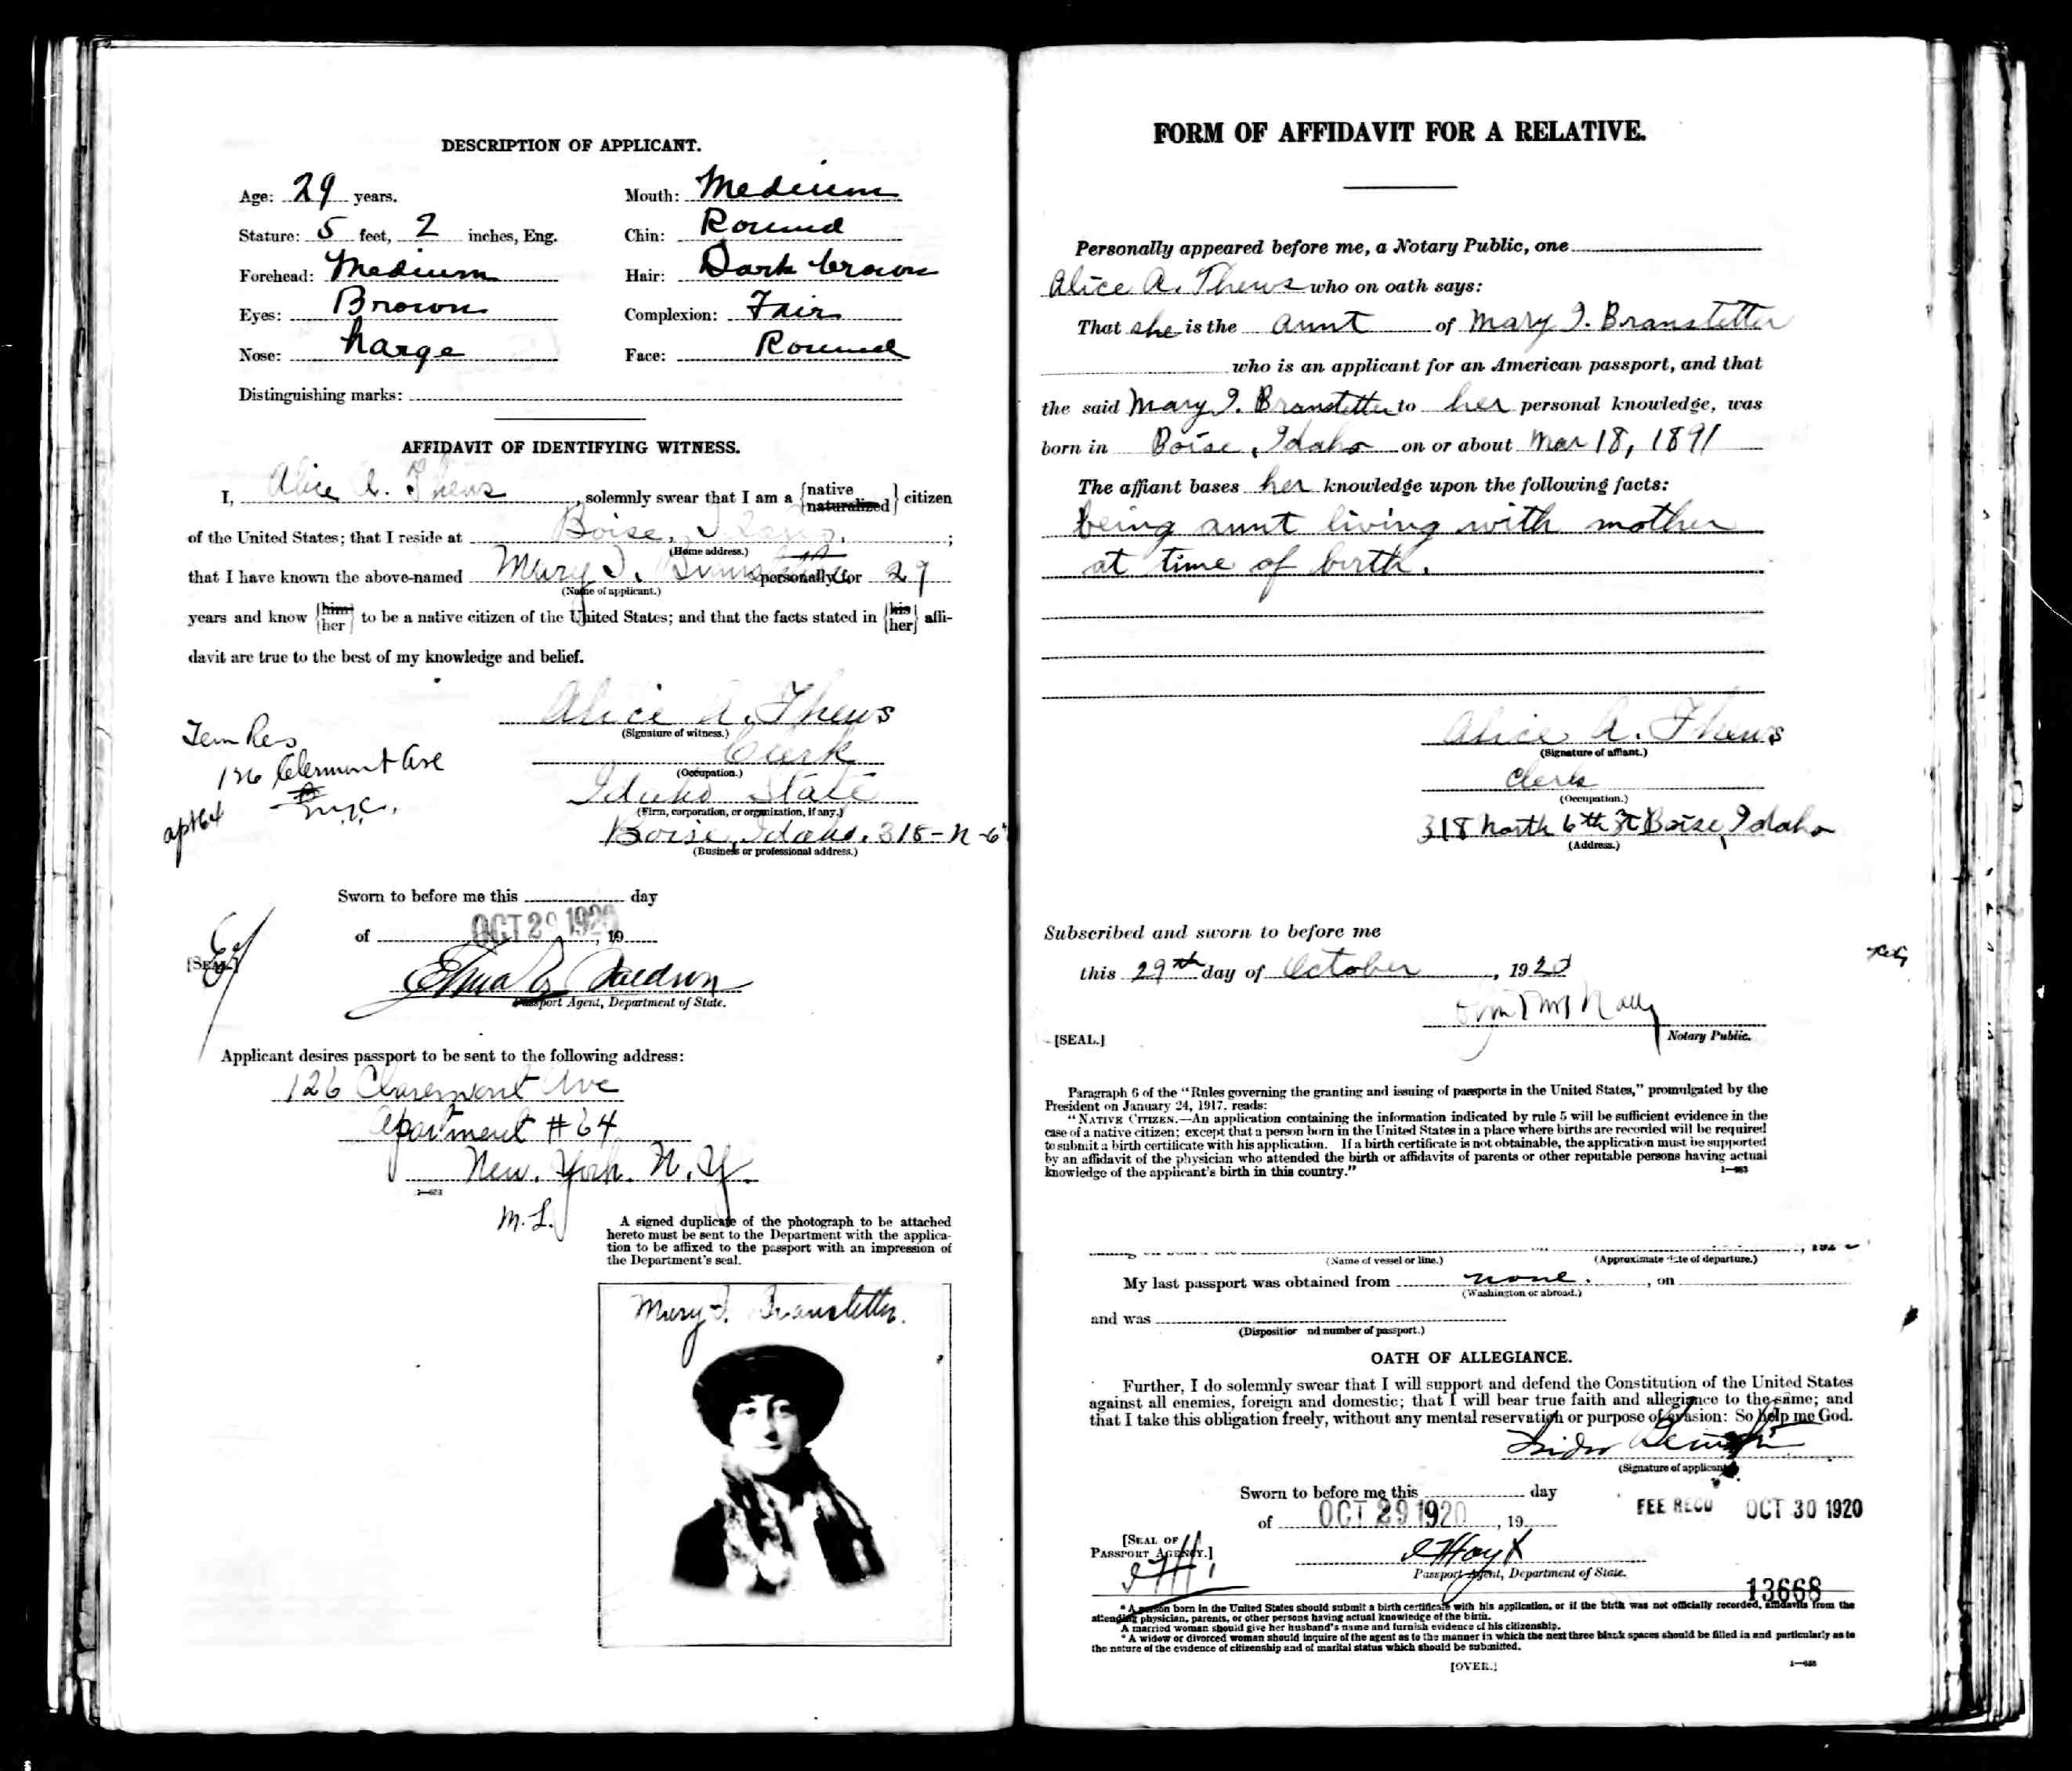 DESCRIPTION OF APPLICANT.
Age: 29 years.
Mouth: Medium
Stature: 5 feet, 2 inches, Eng.
Chin: Round
Forehead: Medium
Hair: Dark brown
Eyes: Brown
Complexion: Fair
Nose: Large
Face: Round
Distinguishing marks:
AFFIDAVIT OF IDENTIFYING WITNESS.
I, Alice A. Thews, solemnly swear that I am a {native naturalized} citizen
of the United States; that I reside at Boise, Idaho.;
(Home address.)
that I have known the above-named Mary I. Branstetter personally for 29
(Name of applicant.)
years and know {him her} to be a native citizen of the United States; and that the facts stated in {his her} affi-
davit are true to the best of my knowledge and belief.
Alice A. Thews
(Signature of witness.)
Tem Res
Clerk
126 Clermont Ave
(Occupation.)
N.Y.C.
Idaho State
apt 64
(Firm, corporation, or organization, if any.)
Boise, Idaho. 318-N-6
(Business or professional address.)
Sworn to before me this day
of OCT 29 1920, 19
[SEAL.]
Passport Agent, Department of State.
Applicant desires passport to be sent to the following address:
126 Claremont Ave
Apartment #64
New. York. N.Y.
M.L.
A signed duplicate of the photograph to be attached
hereto must be sent to the Department with the applica-
tion to be affixed to the passport with an impression of
the Department's seal.
Mary I. Branstetter.
FORM OF AFFIDAVIT FOR A RELATIVE.
Personally appeared before me, a Notary Public, one
Alice A. Thews who on oath says:
That she is the aunt of Mary I. Branstetter
who is an applicant for an American passport, and that
the said Mary I. Branstetter to her personal knowledge, was
born in Boise, Idaho on or about Mar 18, 1891
The affiant bases her knowledge upon the following facts:
being aunt living with mother
at time of birth.
Alice A. Thews
(Signature of affiant.)
Clerk
(Occupation.)
318 North 6th St Boise, Idaho
(Address.)
Subscribed and sworn to before me
this 29th day of October, 1920
[SEAL.]
Notary Public.
Paragraph 6 of the "Rules governing the granting and issuing of passports in the United States," promulgated by the
President on January 24, 1917, reads:
"NATIVE CITIZEN.—An application containing the information indicated by rule 5 will be sufficient evidence in the
case of a native citizen; except that a person born in the United States in a place where births are recorded will be required
to submit a birth certificate with his application. If a birth certificate is not obtainable, the application must be supported
by an affidavit of the physician who attended the birth or affidavits of parents or other reputable persons having actual
knowledge of the applicant's birth in this country."
(Name of vessel or line.) (Approximate date of departure.)
My last passport was obtained from none., on
(Washington or abroad.)
and was
(Disposition nd number of passport.)
OATH OF ALLEGIANCE.
Further, I do solemnly swear that I will support and defend the Constitution of the United States
against all enemies, foreign and domestic; that I will bear true faith and allegiance to the same; and
that I take this obligation freely, without any mental reservation or purpose of evasion: So help me God.
(Signature of applicant.)
Sworn to before me this day
FEE RECD OCT 30 1920
of OCT 29 1920, 19
[SEAL OF
PASSPORT AGENCY.]
Passport Agent, Department of State.
13668
*A person born in the United States should submit a birth certificate with his application, or if the birth was not officially recorded, affidavits from the
attending physician, parents, or other persons having actual knowledge of the birth.
A married woman should give her husband's name and furnish evidence of his citizenship.
*A widow or divorced woman should inquire of the agent as to the manner in which the next three blank spaces should be filled in and particularly as to
the nature of the evidence of citizenship and of marital status which should be submitted.
[OVER.]